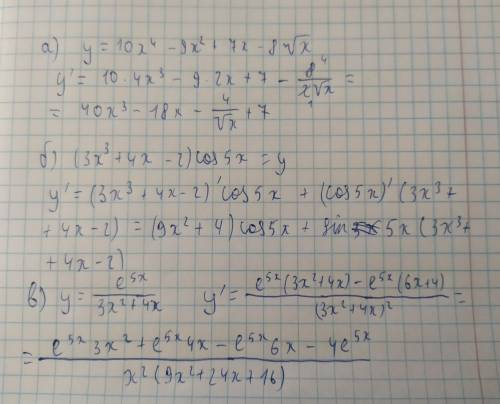 а) y = 10x⁴ - 9x² + 7x - 8√x
y' = 10·4x³ - 9·2x + 7 - 8⁴/2₁√x =
= 40x³ - 18x - 4/√x + 7
б) (3x³+4x-2)cos5x = y
y' = (3x³+4x-2)'cos5x + (cos5x)'(3x³+
+4x-2) = (9x²+4)cos5x + sin5x(3x³+
+4x-2)
в) y = e^5x/(3x²+4x) y' = (e^5x(3x²+4x) - e^5x(6x+4))/(3x²+4x)² =
= (e^5x3x² + e^5x4x - e^5x6x - 4e^5x)/(x²(9x²+24x+16))